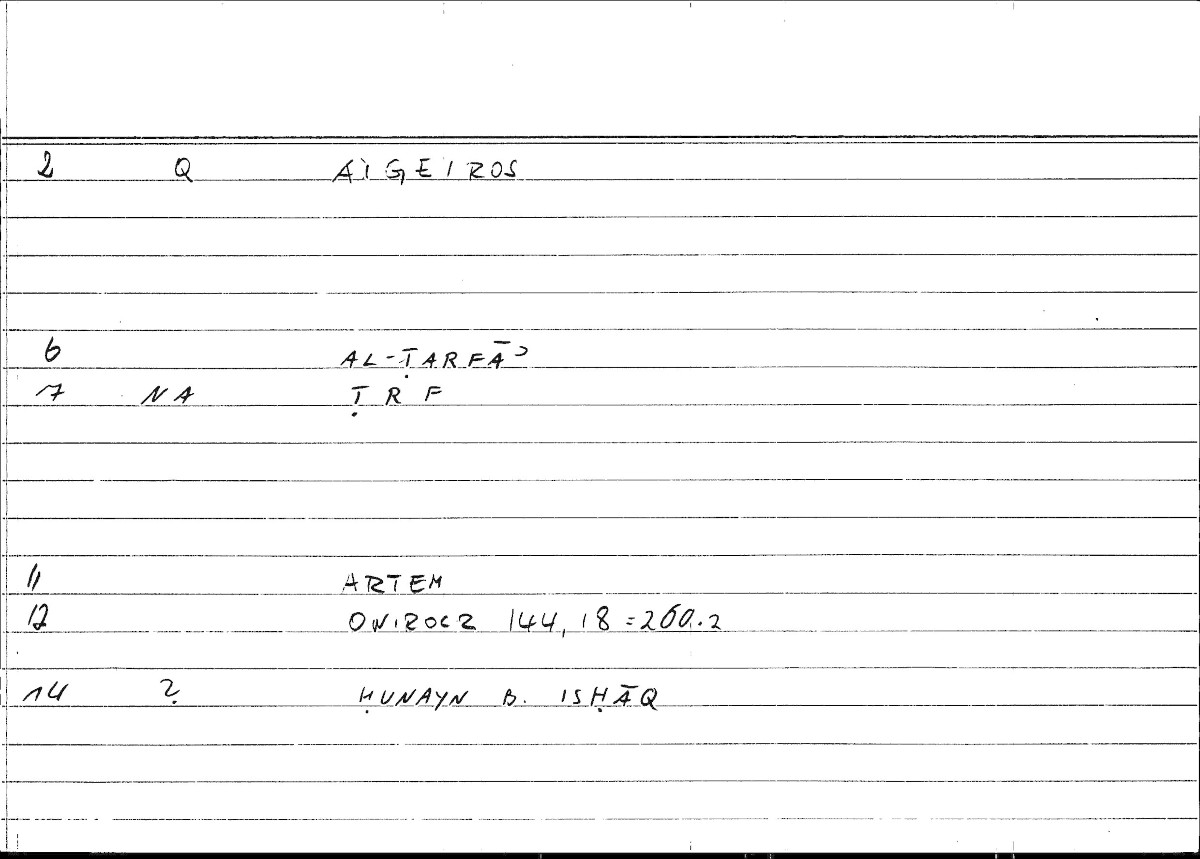 2 Q AÌGEIROS
6 AL-ṬARFĀʾ
7 NA ṬRF
11 ARTEM
12 ONIROCR 144,18=260.2
14 ? ḤUNAYN B. ISḤĀQ